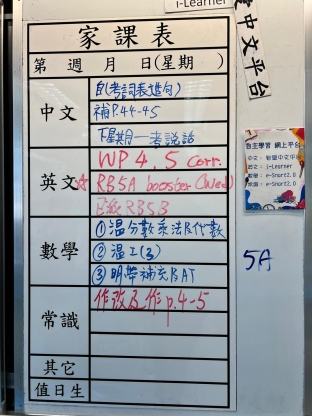 i-Learner
中文平台
家課表
第 週 月 日(星期 )
中文
自(考詞表造句)
補P.44-45
下星期一考說話
英文☆
WP 4, 5 corr.
RB5A booster (Wed)
RB5B
數學
①溫分數乘法及代數
②溫工(3)
③明帶補充及AT
常識
作改及作 p.4-5
其它
值日生
自主學習 網上平台
i-Learner
e-Smart2.0
e-Smart2.0
5A